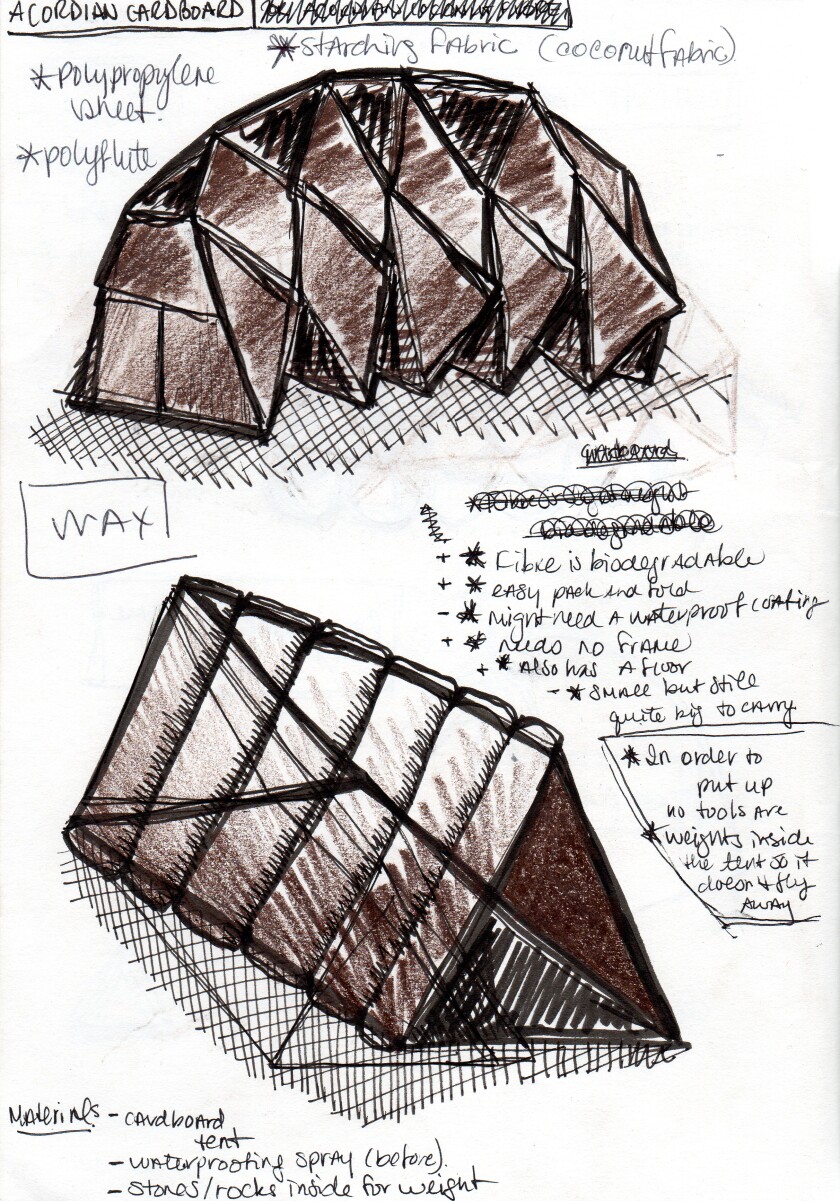 ACORDIAN CARDBOARD
* Starching fabric (coconut fabric)
* polypropylene
sheet.
* polyflute
WAX
+ * Fibre is biodegradable
+ * easy pack and fold
- * might need a waterproof coating
+ * needs no frame
+ * Also has a floor
- * small but still
quite big to carry
* In order to
put up
no tools are
* weights inside
the tent so it
doesn't fly
away
Materials - cardboard
tent
- waterproofing spray (before).
- stones/rocks inside for weight